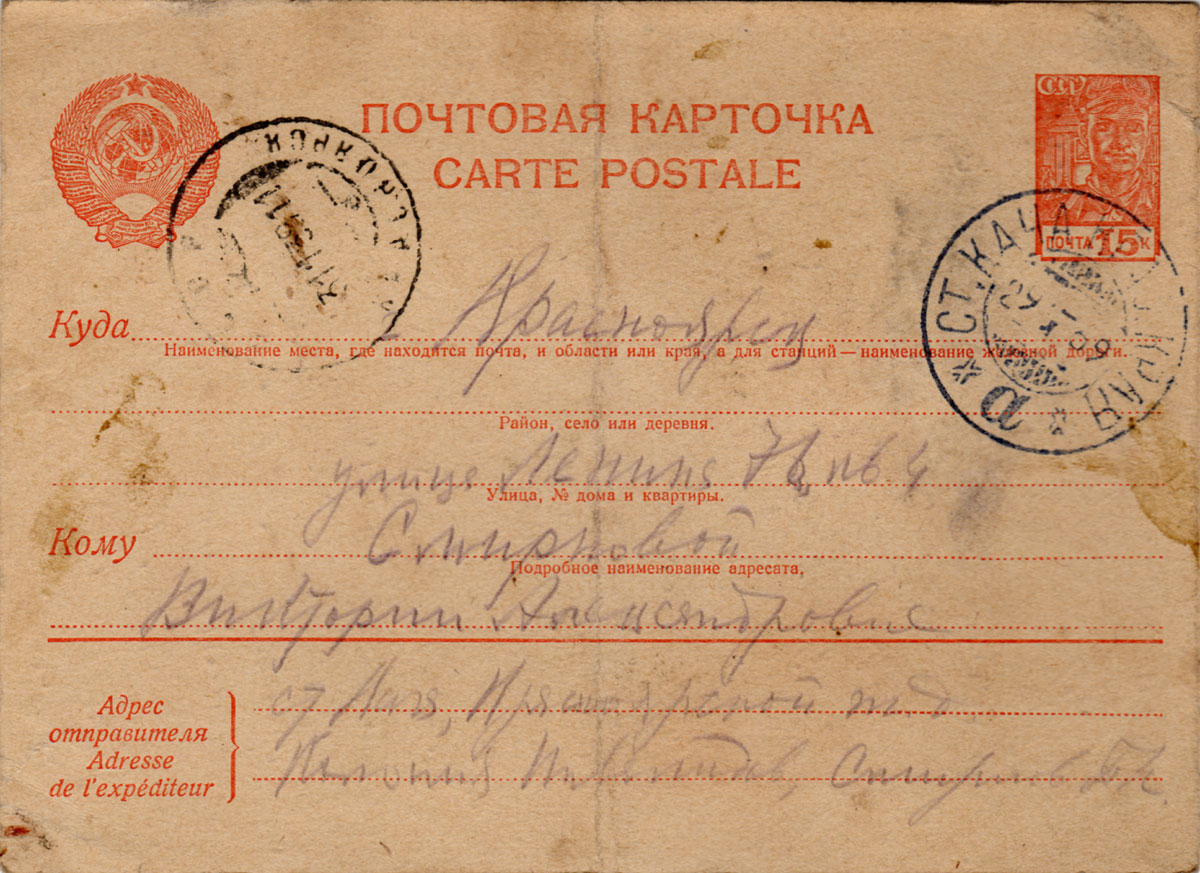 ПОЧТОВАЯ КАРТОЧКА
CARTE POSTALE
СССР
ПОЧТА 15 К
КРАСНОЯРСК
СТ. КАЧА
КРАЯ
29 39
а
Куда Красноярск
Наименование места, где находится почта, и области или края, а для станций—наименование железной дороги.
Район, село или деревня.
улица Ленина 78, кв 4
Улица, № дома и квартиры.
Кому Смирновой
Подробное наименование адресата.
Виктории Александровне
Адрес
отправителя
Adresse
de l'expéditeur
ст Кача, Красноярской жд
Смирнов